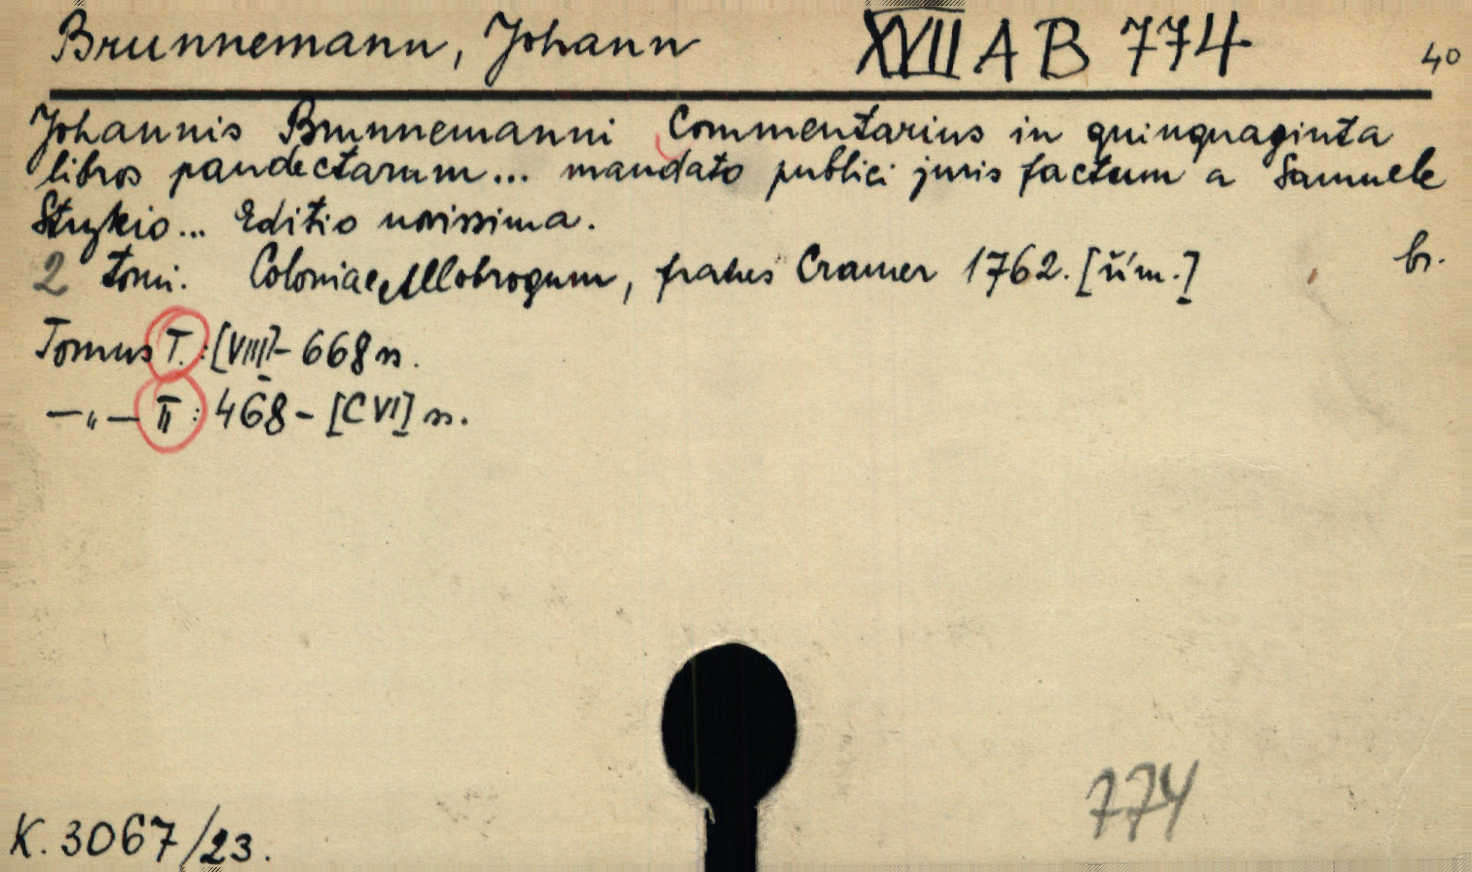 Brunnemann, Johann XVII A B 774 4°
Johannis Brunnemanni Commentarius in quinquaginta
libros pandectarum... mandato publici juris factum a Samuele
Strykio... Editio novissima.
2 tomi. Coloniae Allobrogum, fratres Cramer 1762. [řím.] br.
Tomus I.: [VIII]- 668 ss.
—„— II: 468 - [CVI] ss.
774
K. 3067/23.